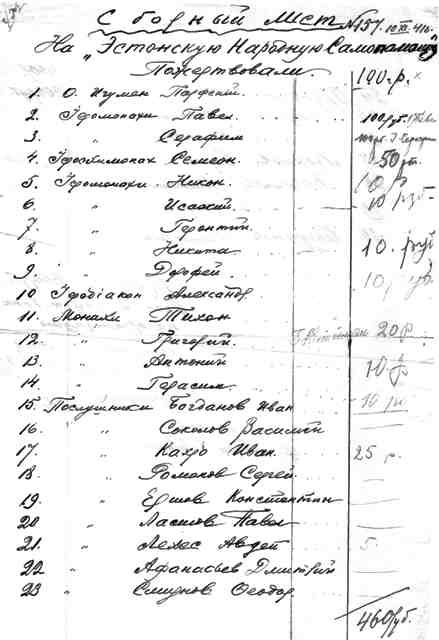 Сборный Лист №157. 10 XI. 41г.
На "Эстонскую Народную Самопомощь"
Пожертвовали. 100 р.
1. О. Игумен Парфений.
2. Іеромонахи Павел. 100 руб.
3. " Серафим
4. Іеросхимонах Семеон. 50
5. Іеромонахи Никон. 10 р
6 " Исаакий. 10 руб.
7. " Геронтий.
8. " Никита 10. руб
9. " Дорофей. 10, руб.
10 Іродіакон Александр.
11. Монахи Тихон.
12. " Григорий. 20 р.
13. " Антоний 10 р
14 " Герасим.
15. Послушники Богданов Иван 10 р
16 " Соколов Василий
17. " Кахро Иван. 25 р.
18 " Романов Сергей
19. " Ершов Константин
20 " Павел
21. " Лехес Авдей 5.
22 " Афанасьев Дмитрий
23 " Смирнов Феодор.
460 руб.